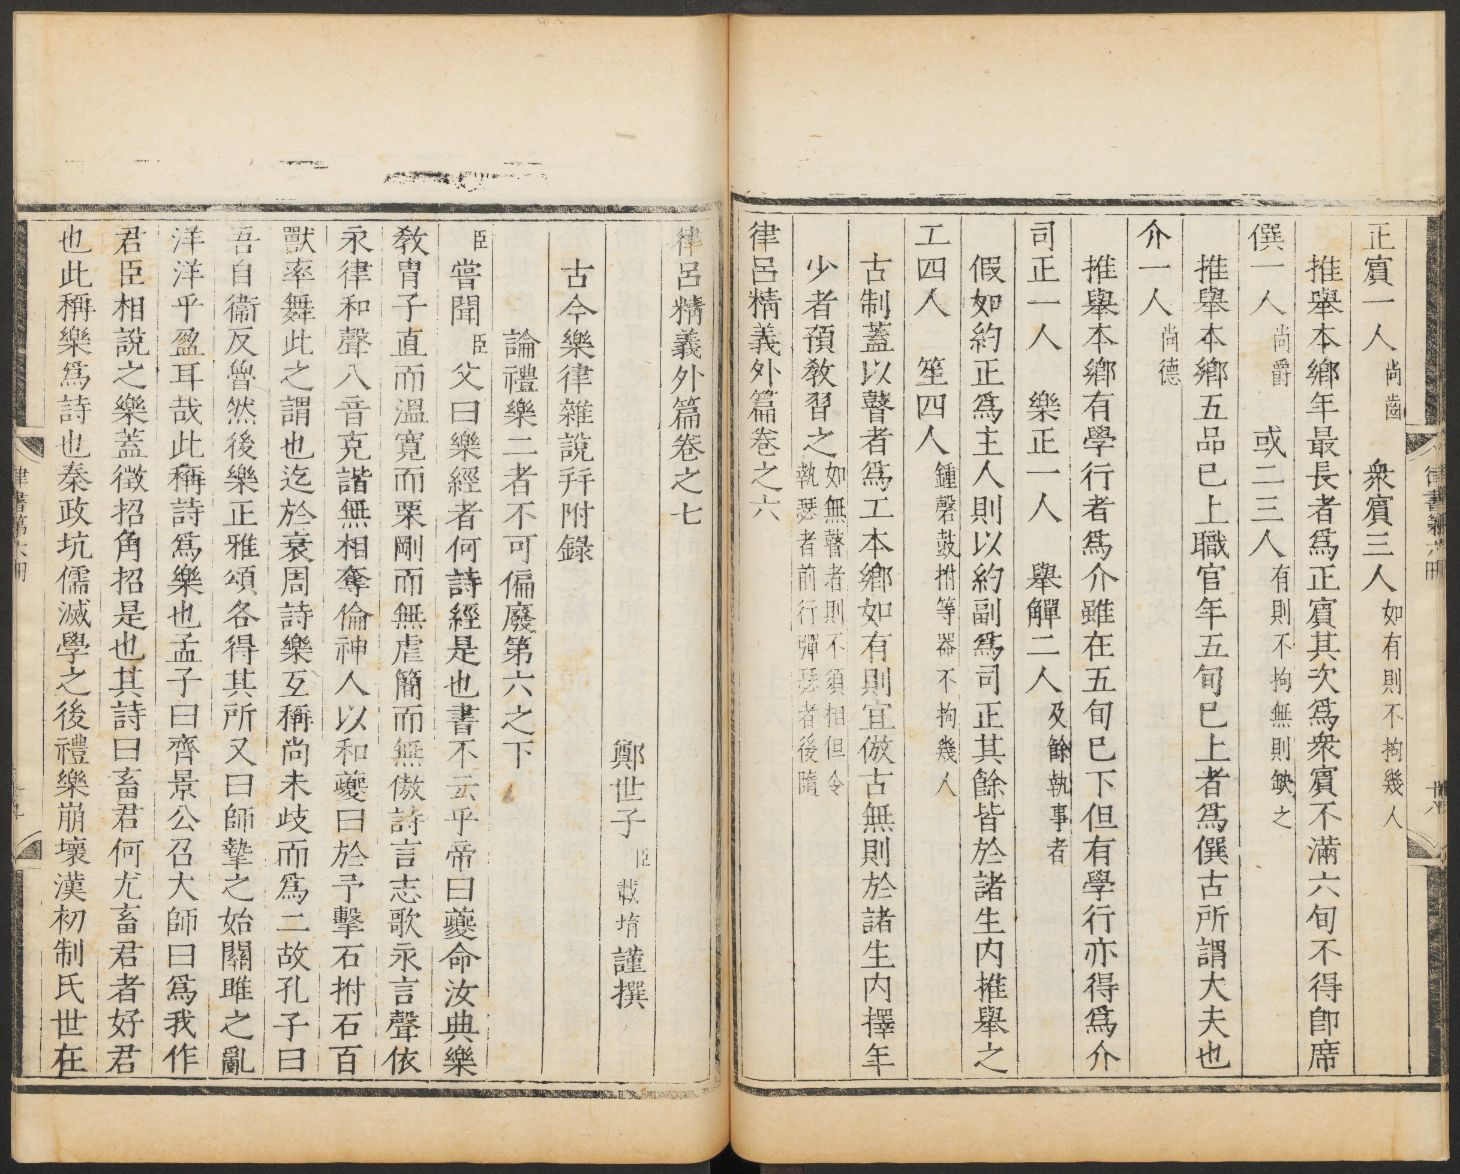 正賓一人尚齒 衆賓三人如有則不拘幾人
推舉本鄉年最長者爲正賓其次爲衆賓不滿六旬不得卽席
僎一人尚爵 或二三人有則不拘無則缺之
推舉本鄉五品已上職官年五旬已上者爲僎古所謂大夫也
介一人尚德
推舉本鄉有學行者爲介雖在五旬已下但有學行亦得爲介
司正一人 樂正一人 舉觶二人及餘執事者
假如約正爲主人則以約副爲司正其餘皆於諸生内推舉之
工四人 笙四人鍾磬鼓拊等器不拘幾人
古制蓋以瞽者爲工本鄉如有則宜倣古無則於諸生内擇年
少者預敎習之如無瞽者則不須相但令執瑟者前行彈瑟者後隨
律呂精義外篇卷之六
律書第六冊
律呂精義外篇卷之七
鄭世子臣載堉謹撰
古今樂律雜說幷附錄
論禮樂二者不可偏廢第六之下
臣嘗聞臣父曰樂經者何詩經是也書不云乎帝曰夔命汝典樂
敎胄子直而溫寬而栗剛而無虐簡而無傲詩言志歌永言聲依
永律和聲八音克諧無相奪倫神人以和夔曰於予擊石拊石百
獸率舞此之謂也迄於衰周詩樂互稱尚未歧而爲二故孔子曰
吾自衞反魯然後樂正雅頌各得其所又曰師摯之始關雎之亂
洋洋乎盈耳哉此稱詩爲樂也孟子曰齊景公召大師曰爲我作
君臣相說之樂蓋徵招角招是也其詩曰畜君何尤畜君者好君
也此稱樂爲詩也秦政坑儒滅學之後禮樂崩壞漢初制氏世在
律書第六冊